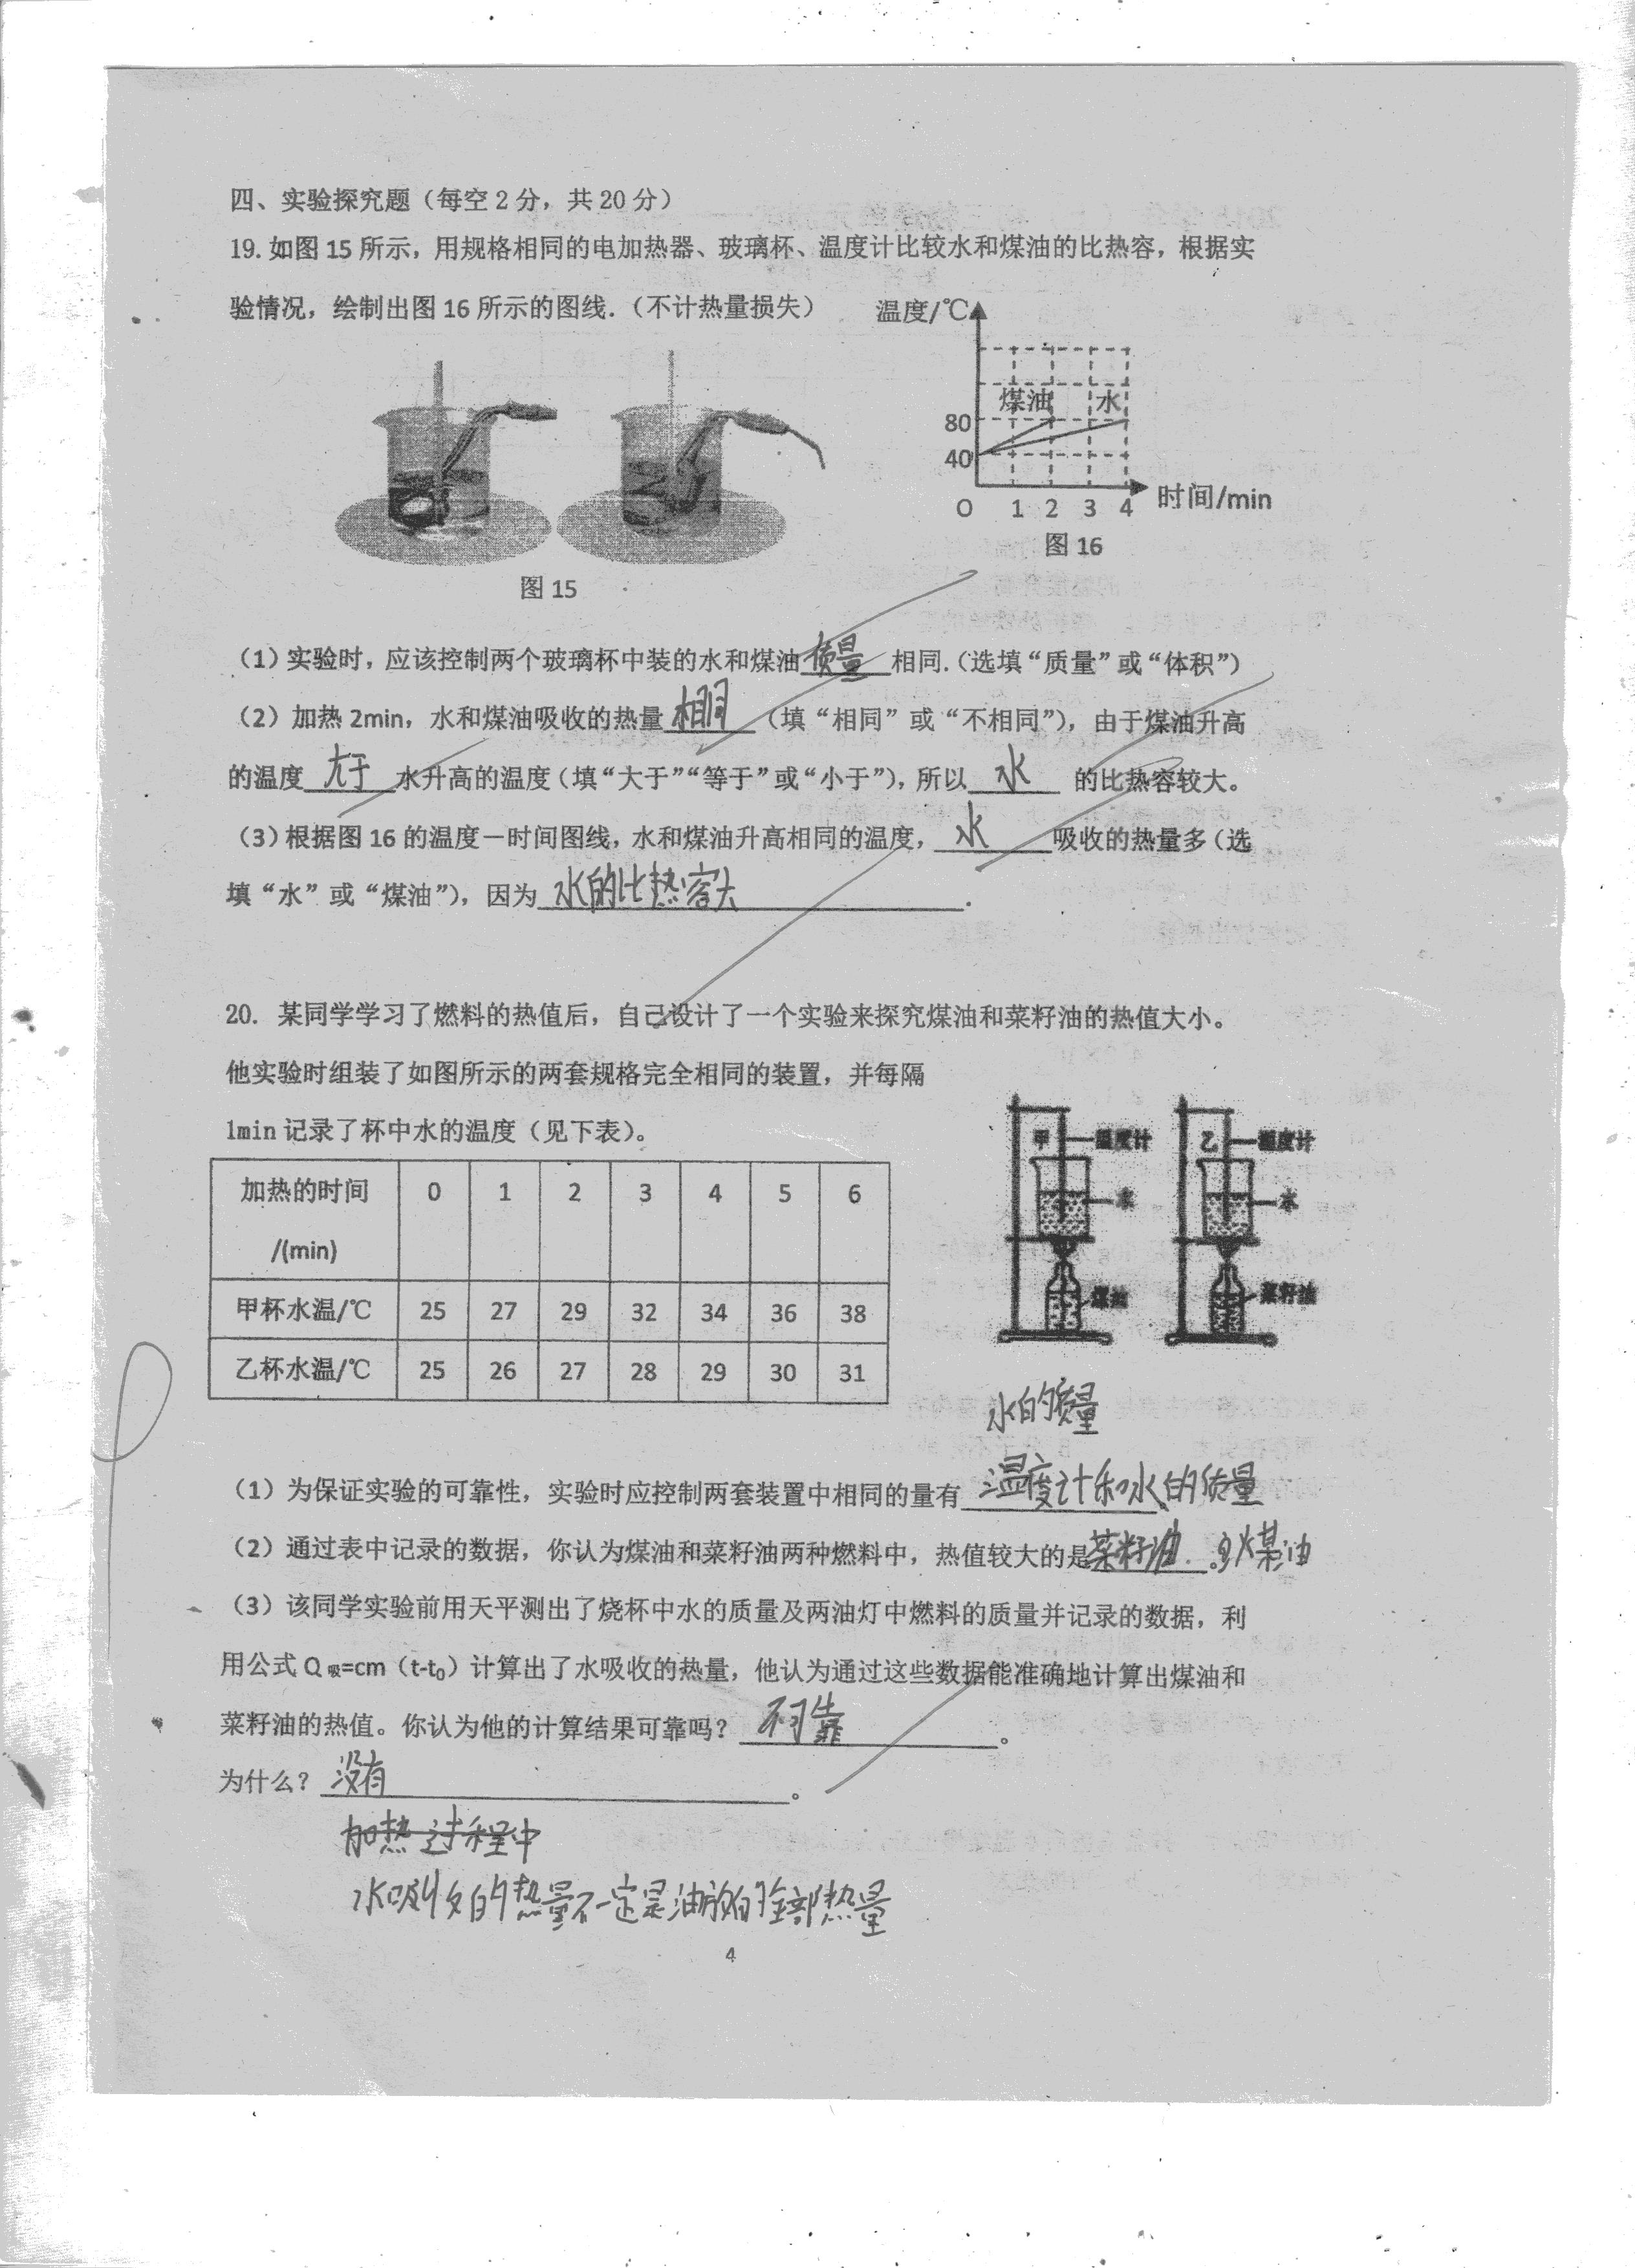 四、实验探究题（每空 2 分，共 20 分）
19. 如图 15 所示，用规格相同的电加热器、玻璃杯、温度计比较水和煤油的比热容，根据实
验情况，绘制出图 16 所示的图线．（不计热量损失）
温度/℃
煤油 水
80
40
O 1 2 3 4 时间/min
图 16
图 15
（1）实验时，应该控制两个玻璃杯中装的水和煤油 质量 相同．（选填“质量”或“体积”）
（2）加热 2min，水和煤油吸收的热量 相同 （填“相同”或“不相同”），由于煤油升高
的温度 大于 水升高的温度（填“大于”“等于”或“小于”），所以 水 的比热容较大。
（3）根据图 16 的温度－时间图线，水和煤油升高相同的温度， 水 吸收的热量多（选
填“水”或“煤油”），因为 水的比热容大 ．
20. 某同学学习了燃料的热值后，自己设计了一个实验来探究煤油和菜籽油的热值大小。
他实验时组装了如图所示的两套规格完全相同的装置，并每隔
1min 记录了杯中水的温度（见下表）。
加热的时间/(min) 0 1 2 3 4 5 6
甲杯水温/℃ 25 27 29 32 34 36 38
乙杯水温/℃ 25 26 27 28 29 30 31
甲 温度计 乙 温度计
水 水
煤油 菜籽油
水的质量
（1）为保证实验的可靠性，实验时应控制两套装置中相同的量有 温度计和水的质量
（2）通过表中记录的数据，你认为煤油和菜籽油两种燃料中，热值较大的是 菜籽油 。 煤油
（3）该同学实验前用天平测出了烧杯中水的质量及两油灯中燃料的质量并记录的数据，利
用公式 Q吸=cm（t-t₀）计算出了水吸收的热量，他认为通过这些数据能准确地计算出煤油和
菜籽油的热值。你认为他的计算结果可靠吗？ 不可靠 。
为什么？ 没有 。
加热过程中
水吸收的热量不一定是油放的全部热量
4